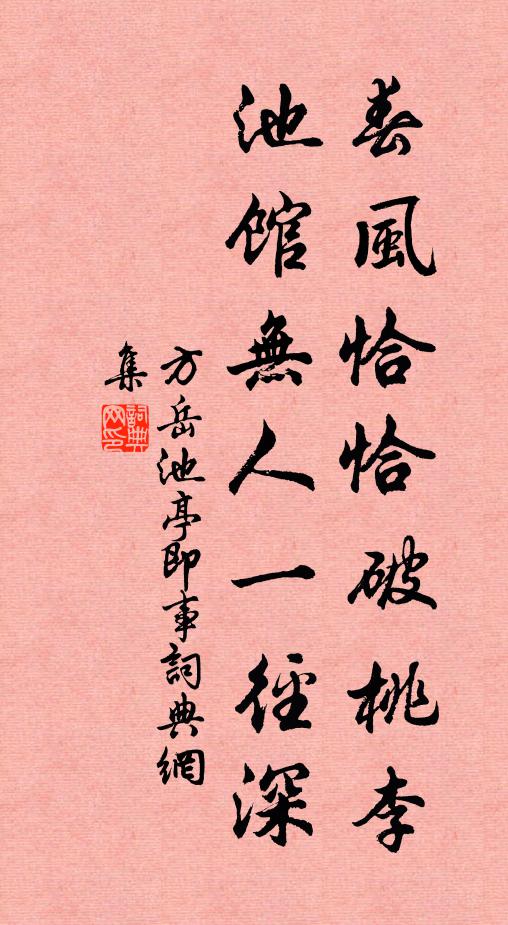 春風恰恰破桃李
池館無人一徑深
方岳池亭即事詞典網
集
詞典網印